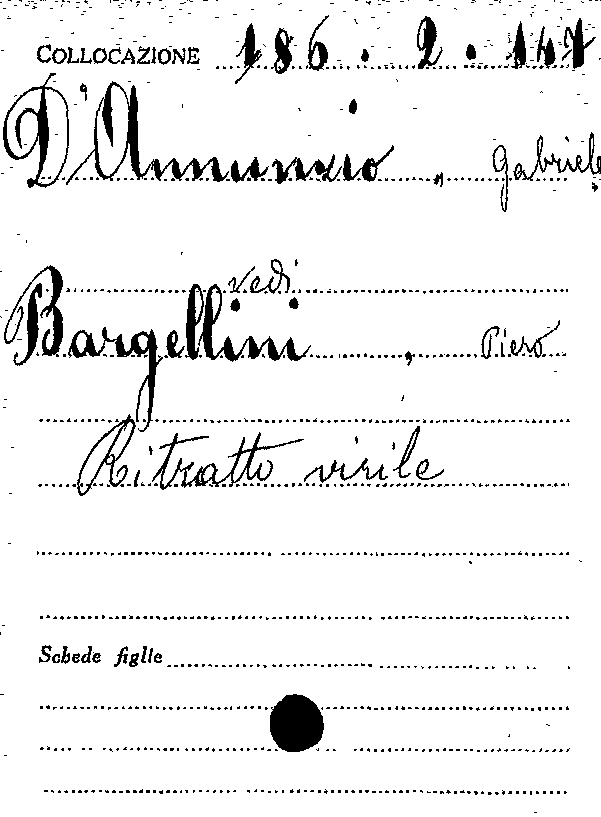 COLLOCAZIONE 186. 2. 147
D'Annunzio, Gabriele
vedi
Bargellini, Piero
Ritratto virile
Schede figlie